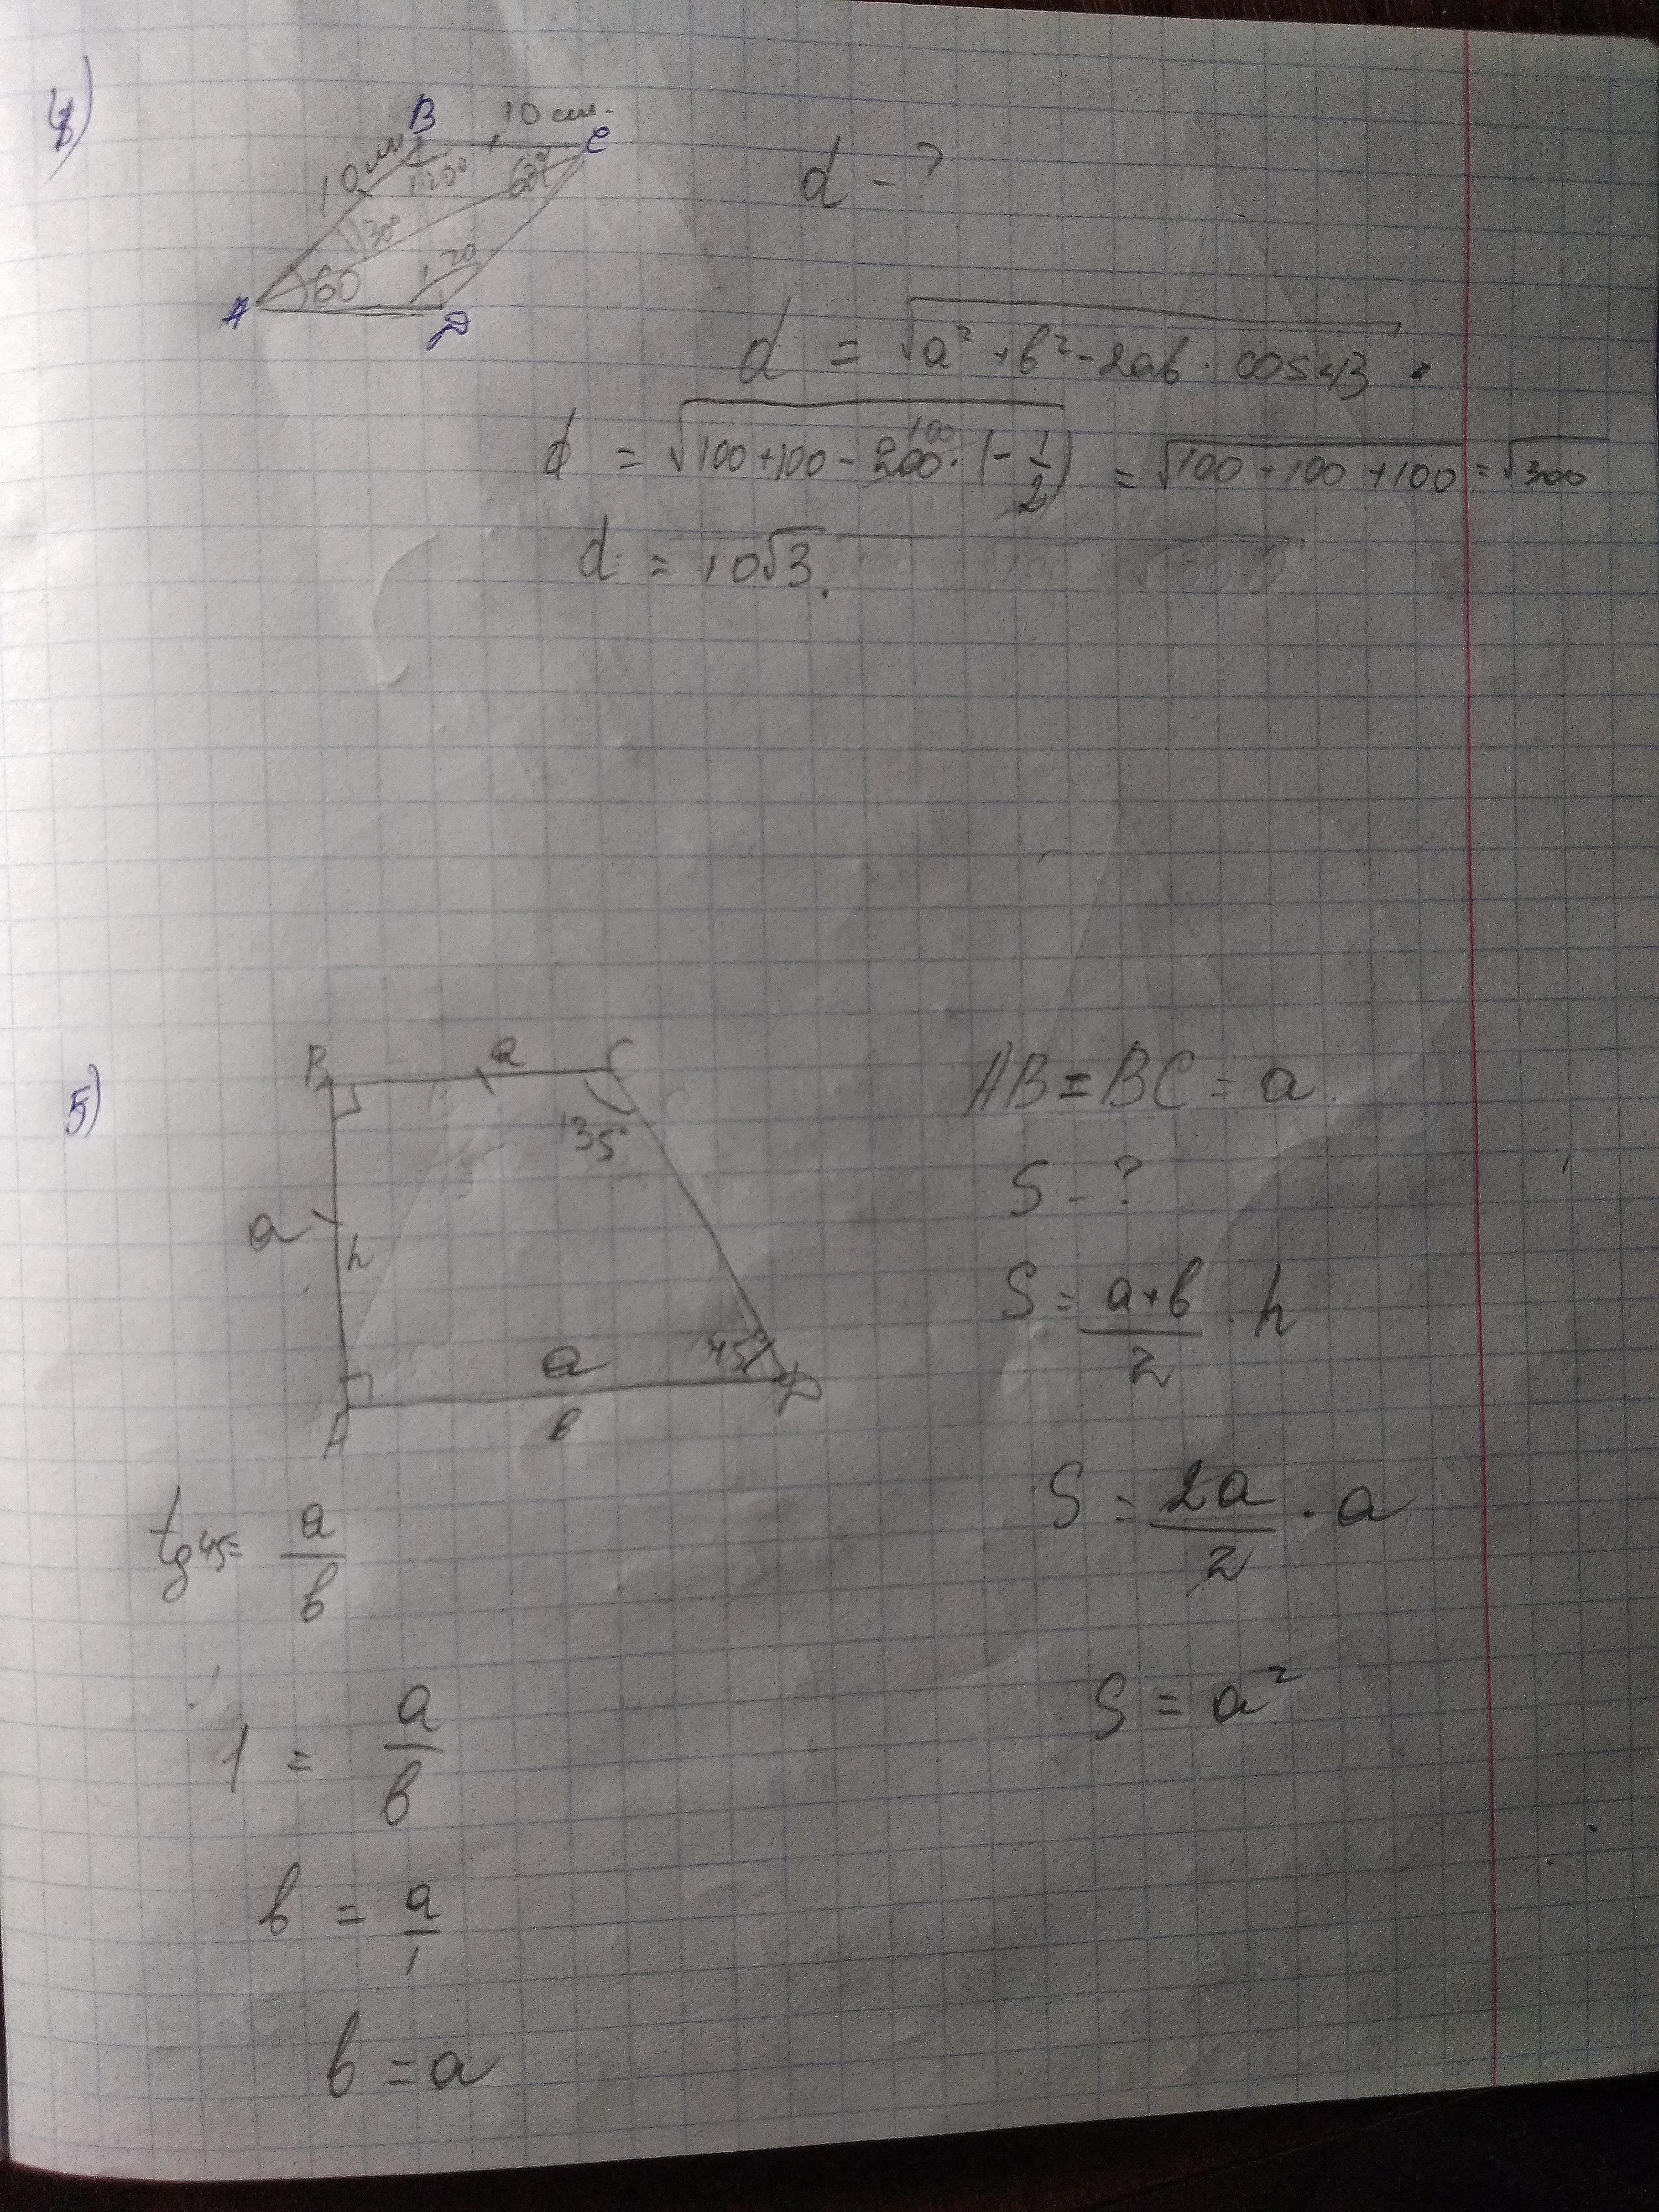 4)
B
10 см.
C
10 см
120°
60°
30°
60
120
A
D
d - ?
d = √a² + b² - 2ab · cos∠B
d = √100 + 100 - 200 · (- 1/2) = √100 + 100 + 100 = √300
d = 10√3.
5)
B
a
C
135°
a
h
a
45°
A
b
D
AB = BC = a.
S - ?
S = a + b / 2 · h
S = 2a / 2 · a
S = a²
tg 45 = a / b
1 = a / b
b = a / 1
b = a